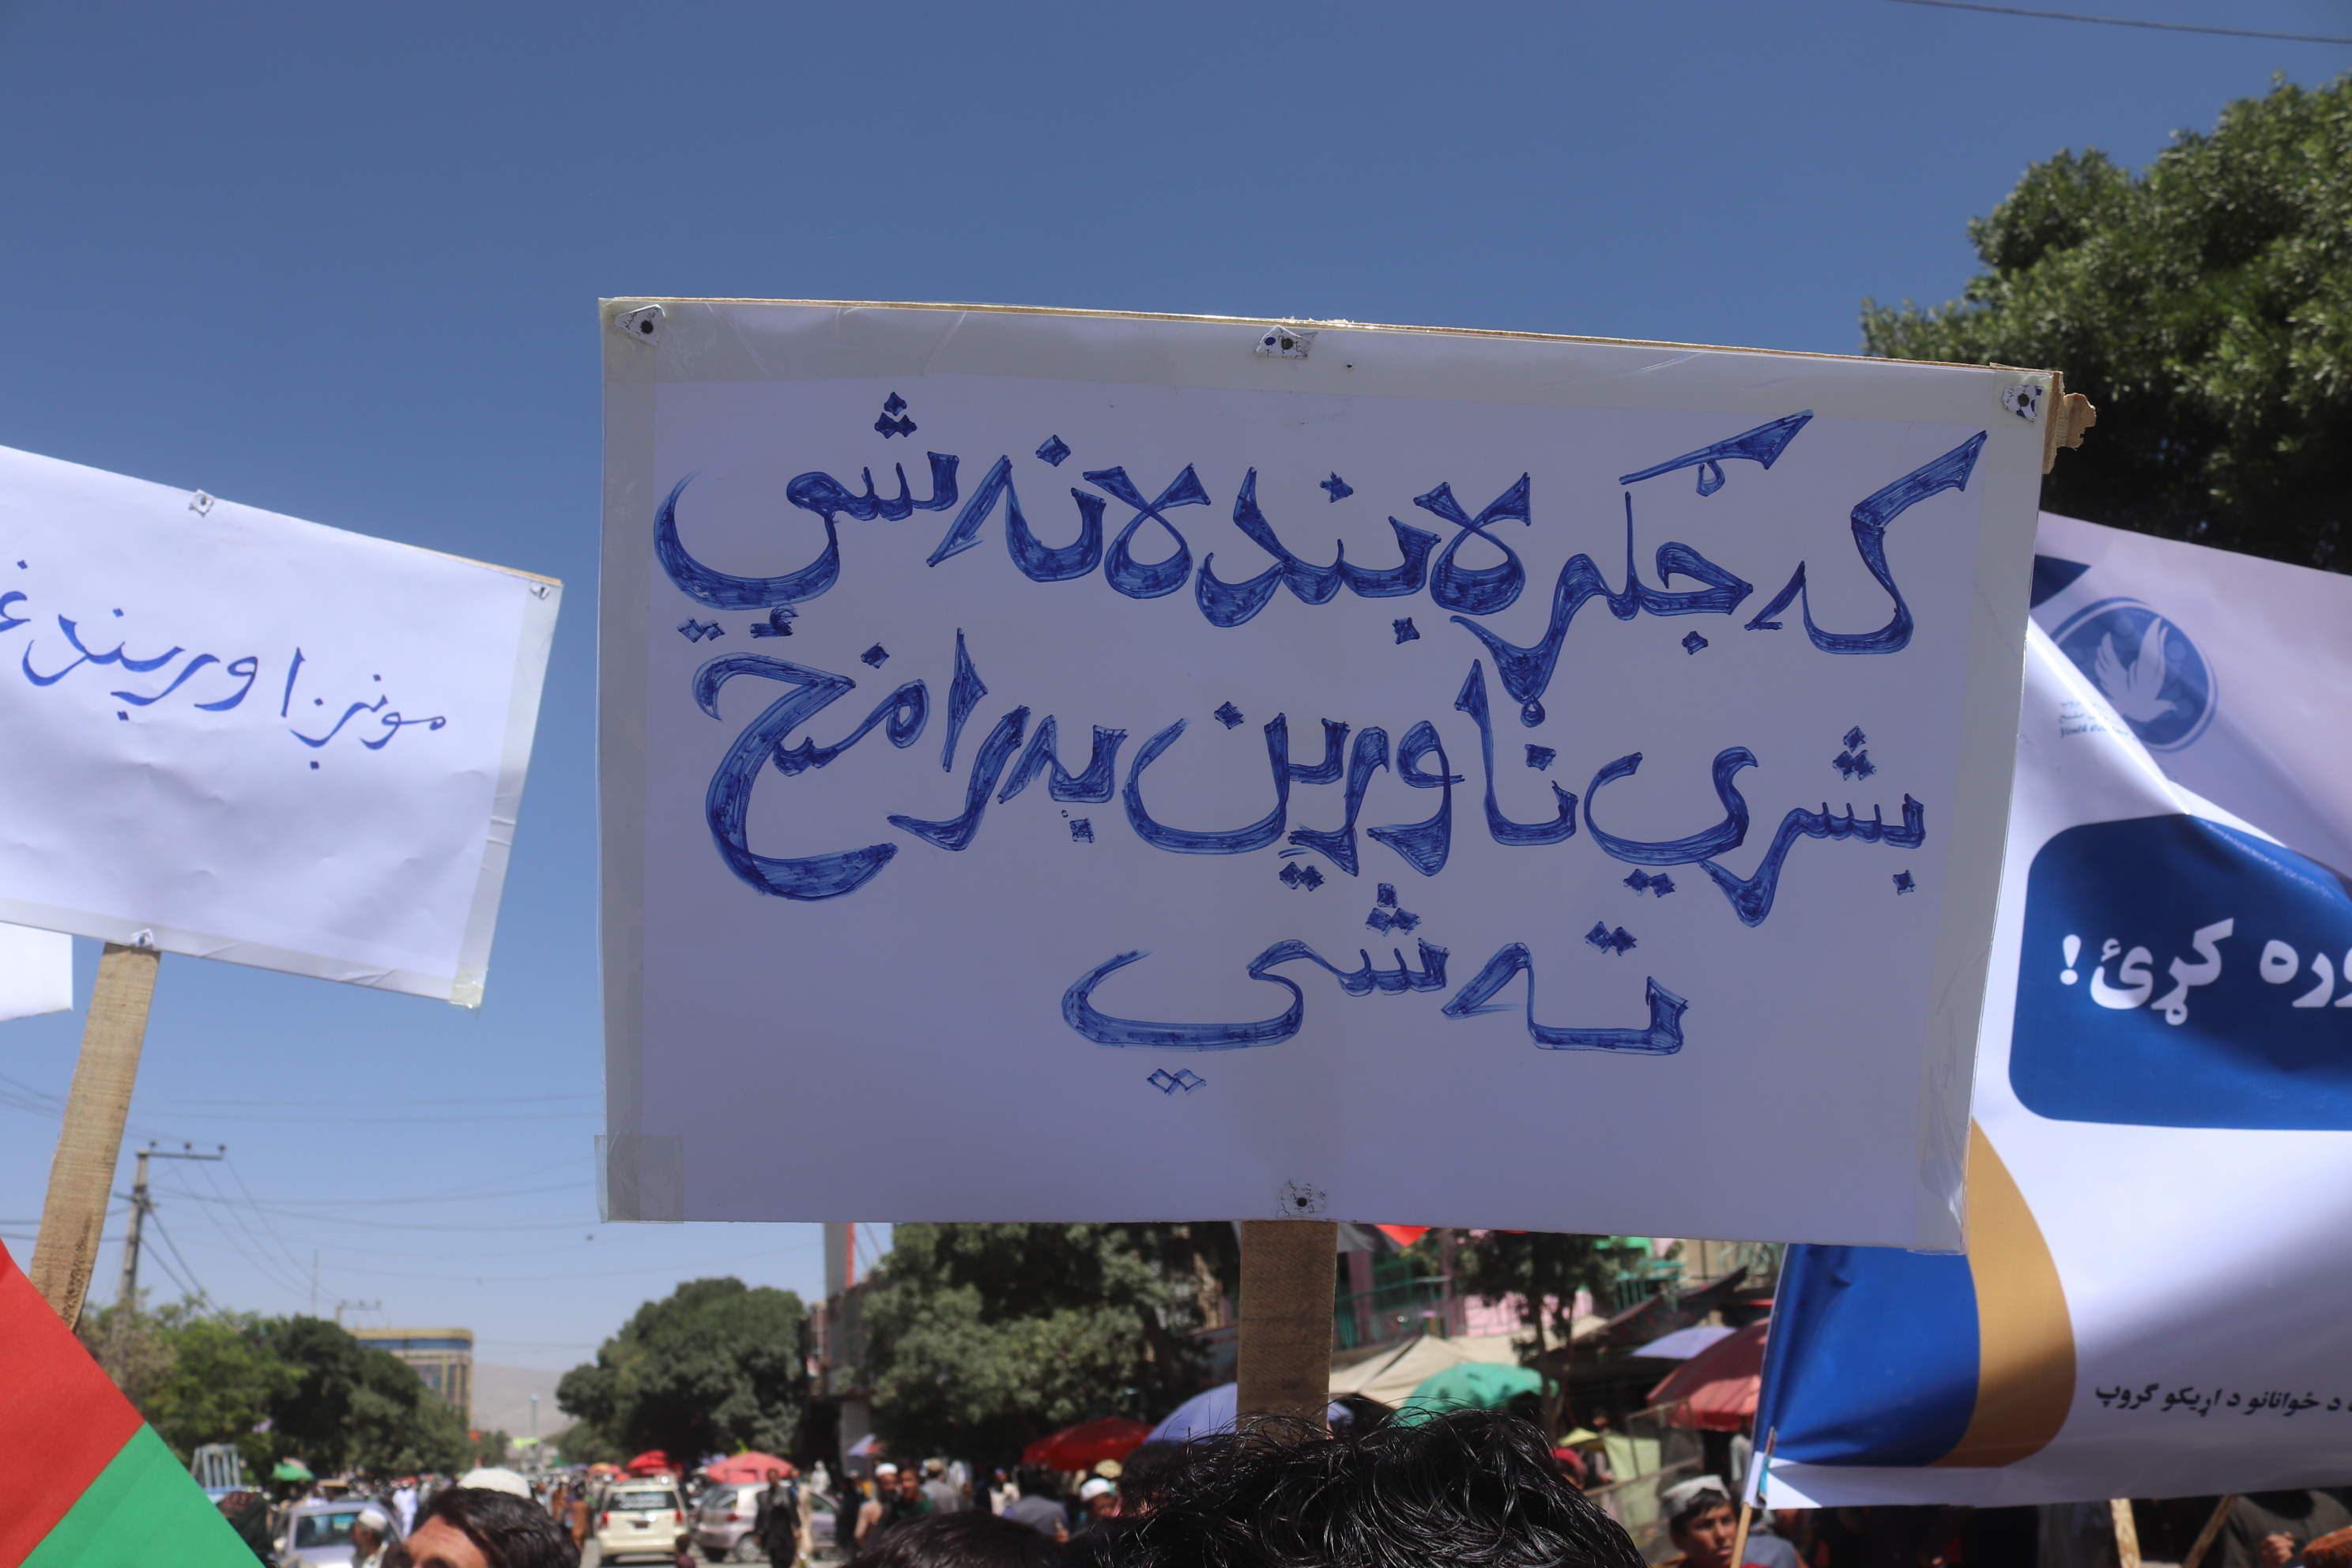 که جګړه بنده نه شي
بشري ناورين به رامنځ
ته شي
مونږ اوربند غ
وره کړئ!
د ځوانانو د اړیکو ګروپ